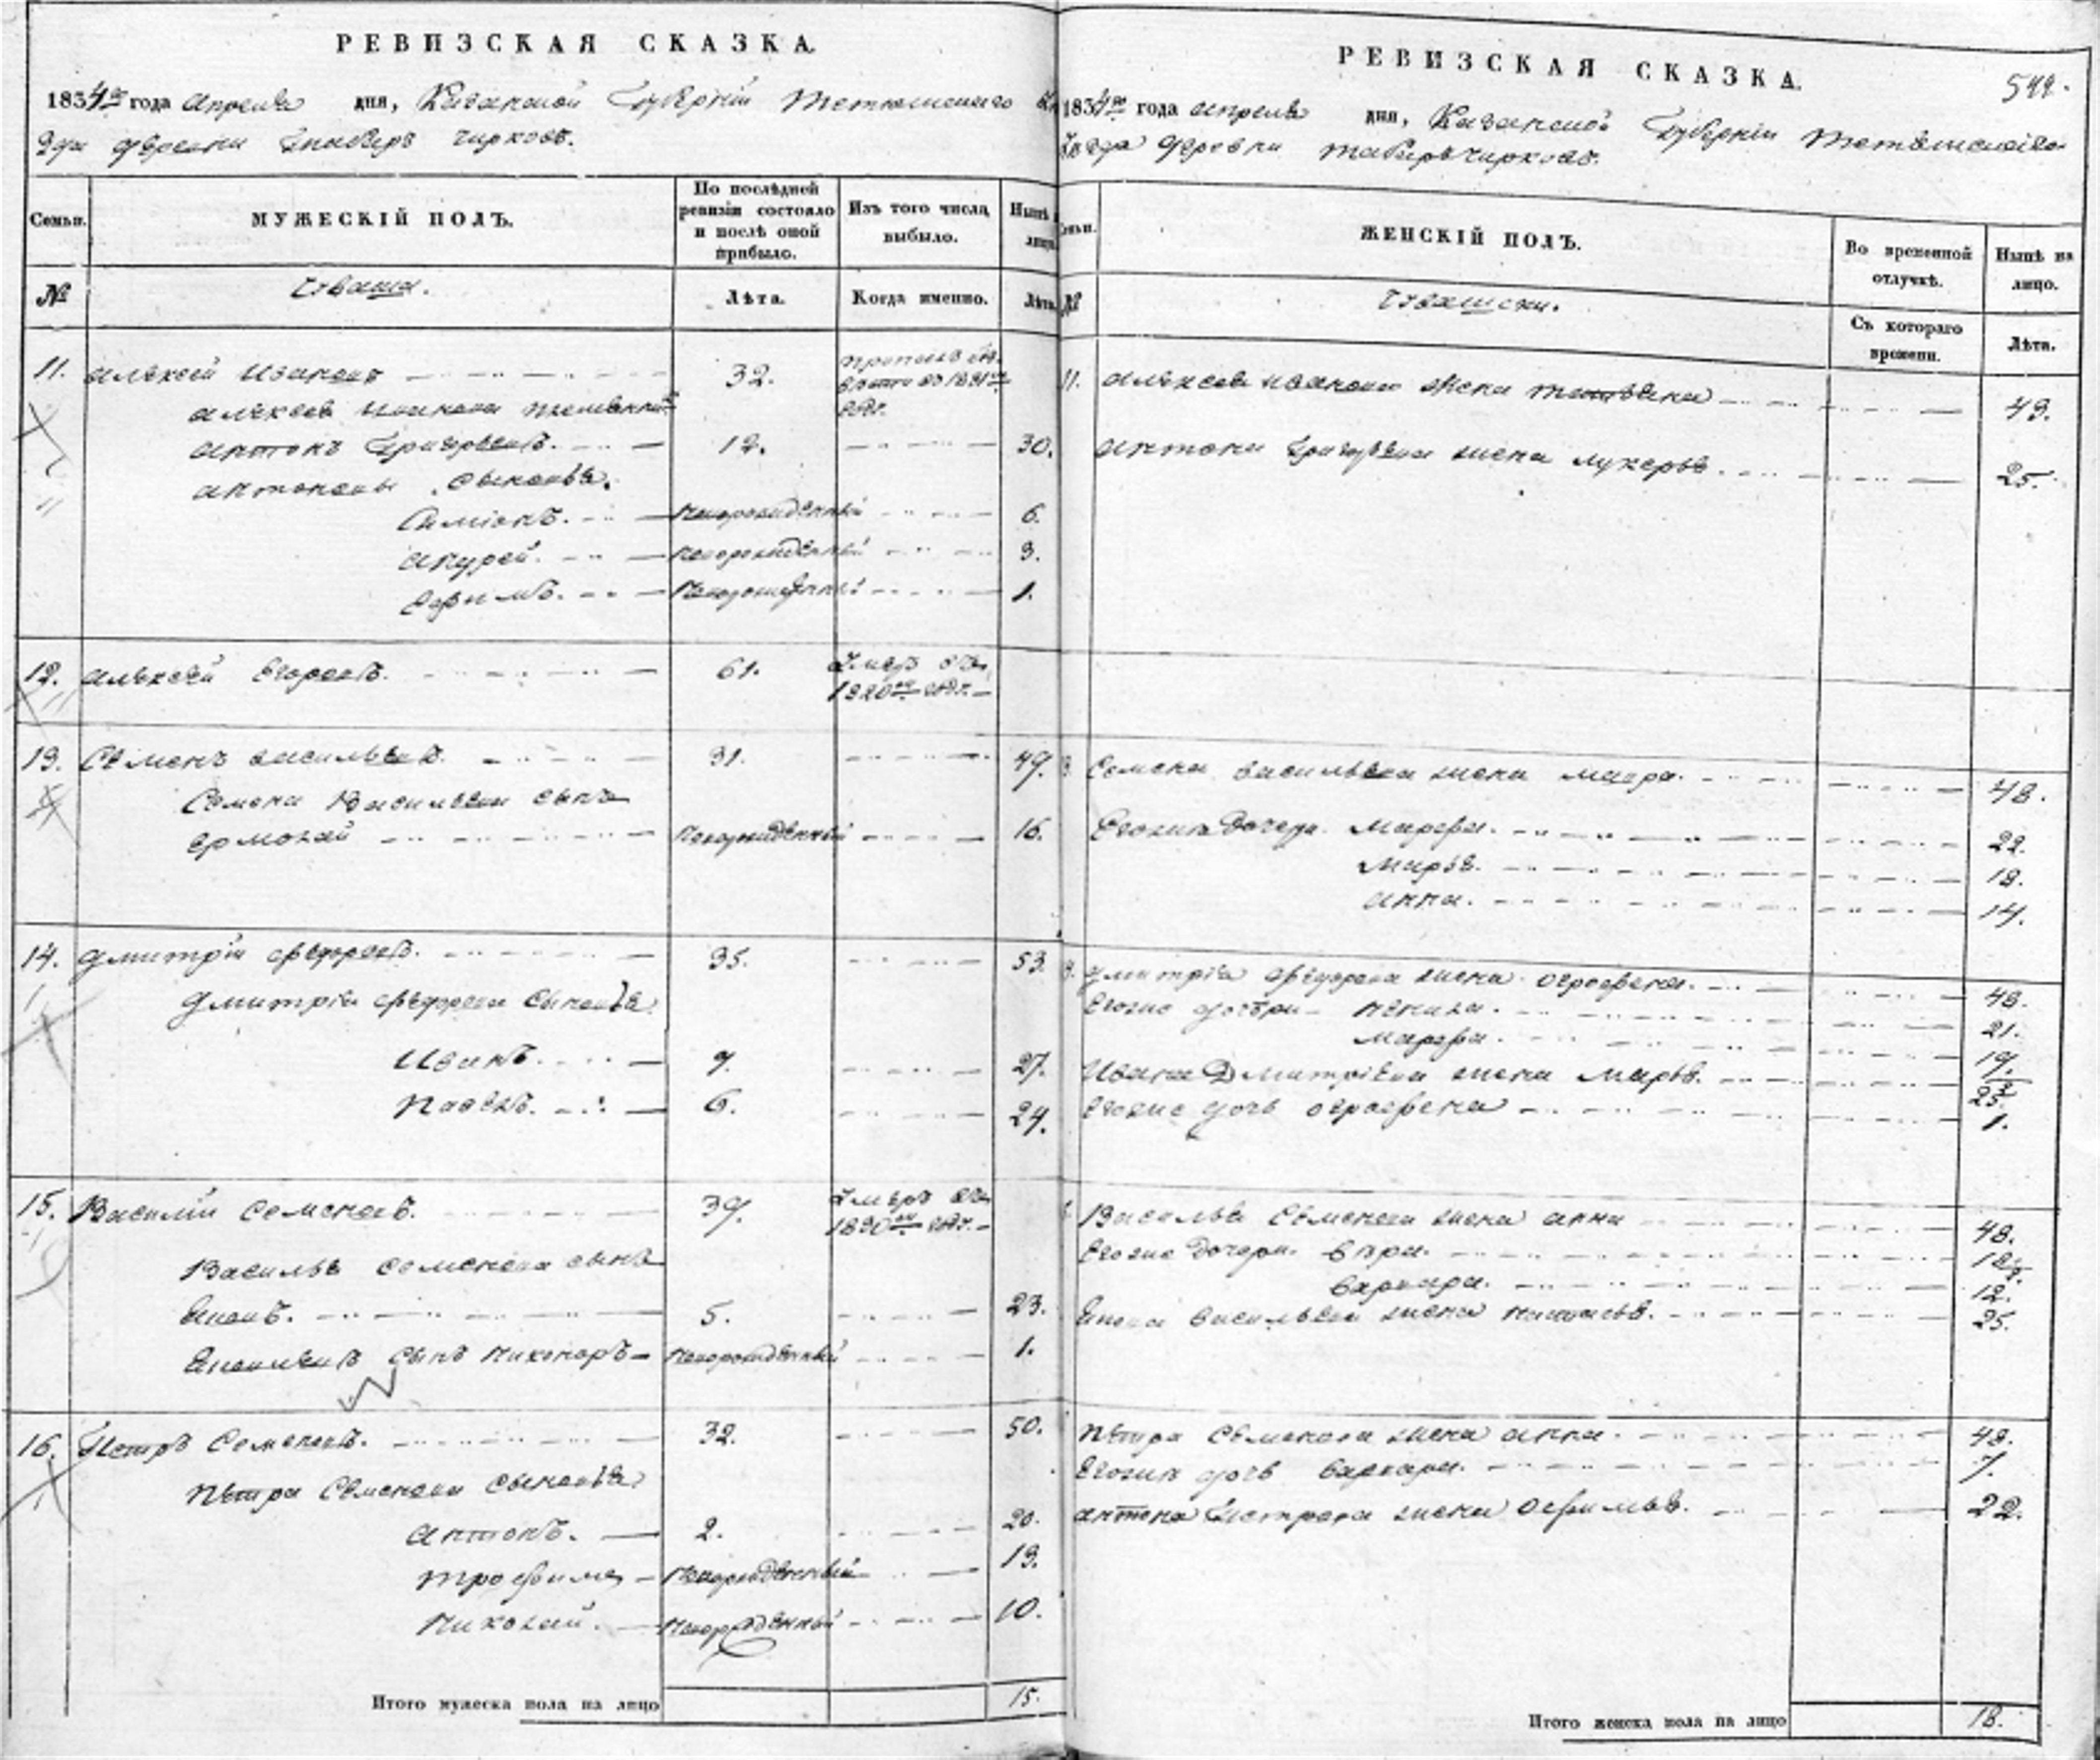 РЕВИЗСКАЯ СКАЗКА.
1834го года апреля дня, Казанской Губернии Тетюшского
деревни чирковъ.
Семьи.
МУЖЕСКІЙ ПОЛЪ.
По послѣдней ревизіи состояло и послѣ оной прибыло.
Изъ того числа выбыло.
Нынѣ
№
Чуваша.
Лѣта.
Когда именно.
Лѣта
11. Алексей Ивановъ 32. 1831го
Алексея Иванова
Антонъ Григорьевъ. 12. 30.
Антоновы сыновья.
Симіонъ. новорожденный 6.
Анурей. новорожденный 3.
Ефимъ. новорожденный 1.
12. Алексей Егоровъ. 61. Умеръ въ
1820мъ году.
13. Семенъ Васильевъ. 31. 49.
Семена Васильева сынъ
Ермолай новорожденный 16.
14. Дмитрій Федоровъ. 35. 53.
Дмитрія Федорова сыновья
Иванъ. 9. 27.
Павелъ. 6. 24.
15. Василій Семеновъ. 39. Умеръ въ
1830мъ году.
Василья Семенова сынъ
5. 23.
сынъ Никоноръ новорожденный 1.
16. Петръ Семеновъ. 32. 50.
Петра Семенова сыновья
Антонъ. 2. 20.
Трофимъ новорожденный 13.
Николай. новорожденный 10.
Итого мужеска пола на лицо 15.
РЕВИЗСКАЯ СКАЗКА.
1834го года апреля дня, Казанской Губернии Тетюшского
уезда деревни чирковъ.
ЖЕНСКІЙ ПОЛЪ.
Во временной отлучкѣ.
Нынѣ на лицо.
№
Чувашски.
Съ котораго времени.
Лѣта.
11. Алексея Иванова жена 49.
Антона Григорьева жена Лукерья. 25.
Семена Васильева жена Мавра. 48.
Егожъ дочери Марфа. 22.
Марья. 18.
Анна. 14.
Дмитрія Федорова жена Ографена. 48.
Егоже дочери 21.
Марфа. 19.
Ивана Дмитріева жена Марья. 25.
Егоже дочь Ографена 1.
Василья Семенова жена Анна 48.
Егоже дочери.
Варвара. 12.
Васильева жена Настасья. 25.
Петра Семенова жена Анна. 48.
Егожъ дочь Варвара. 7.
Антона Петрова жена Офимья. 22.
Итого женска пола на лицо 18.